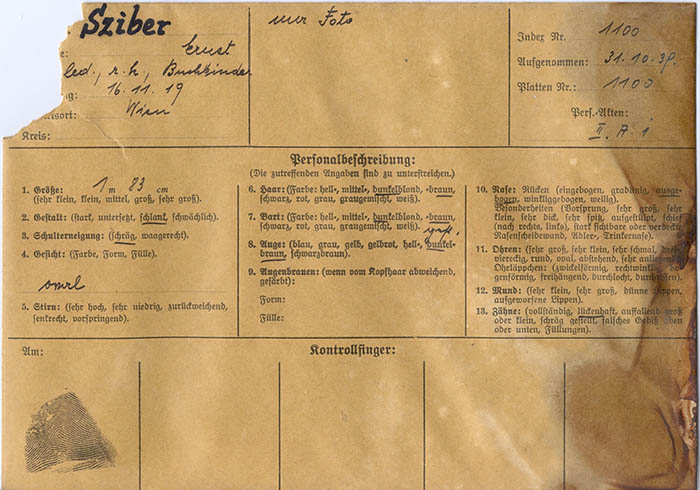 Sziber
Ernst
led., r. k., Buchbinder
16. 11. 19
Wien
Kreis:
nur Foto
Index Nr. 1100
Aufgenommen: 31.10.39.
Platten Nr.: 1100
Pers.-Akten:
II. A. i
Personalbeschreibung:
(Die zutreffenden Angaben sind zu unterstreichen.)
1. Größe: 1 m 83 cm
(sehr klein, klein, mittel, groß, sehr groß).
2. Gestalt: (stark, untersetzt, schlank, schwächlich).
3. Schulterneigung: (schräg, waagerecht).
4. Gesicht: (Farbe, Form, Fülle).
oval
5. Stirn: (sehr hoch, sehr niedrig, zurückweichend,
senkrecht, vorspringend).
6. Haar: (Farbe: hell-, mittel-, dunkelblond, -braun,
schwarz, rot, grau, graugemischt, weiß).
7. Bart: (Farbe: hell-, mittel-, dunkelblond, -braun,
schwarz, rot, grau, graugemischt, weiß).
8. Auge: (blau, grau, gelb, gelbrot, hell-, dunkel-
braun, schwarzbraun).
9. Augenbrauen: (wenn vom Kopfhaar abweichend,
gefärbt):
Form:
Fülle:
10. Nase: Rücken (eingebogen, gradlinig, ausge-
bogen, winkliggebogen, wellig).
Besonderheiten (Vorsprung, sehr groß, sehr
klein, sehr dick, sehr spitz, aufgestülpt, schief
(nach rechts, links), stark sichtbare oder verdeckte
Nasenscheidewand, Adler-, Trinkernase).
11. Ohren: (sehr groß, sehr klein, sehr schmal,
viereckig, rund, oval, abstehend, sehr anliegend
Ohrläppchen: (zwickelförmig, rechtwinklig,
genförmig, freihängend, durchlocht, durchrissen).
12. Mund: (sehr klein, sehr groß, dünne Lippen,
aufgeworfene Lippen).
13. Zähne: (vollständig, lückenhaft, auffallend groß
oder klein, schräg gestellt, falsches Gebiß oben
oder unten, Füllungen).
Am:
Kontrollfinger: